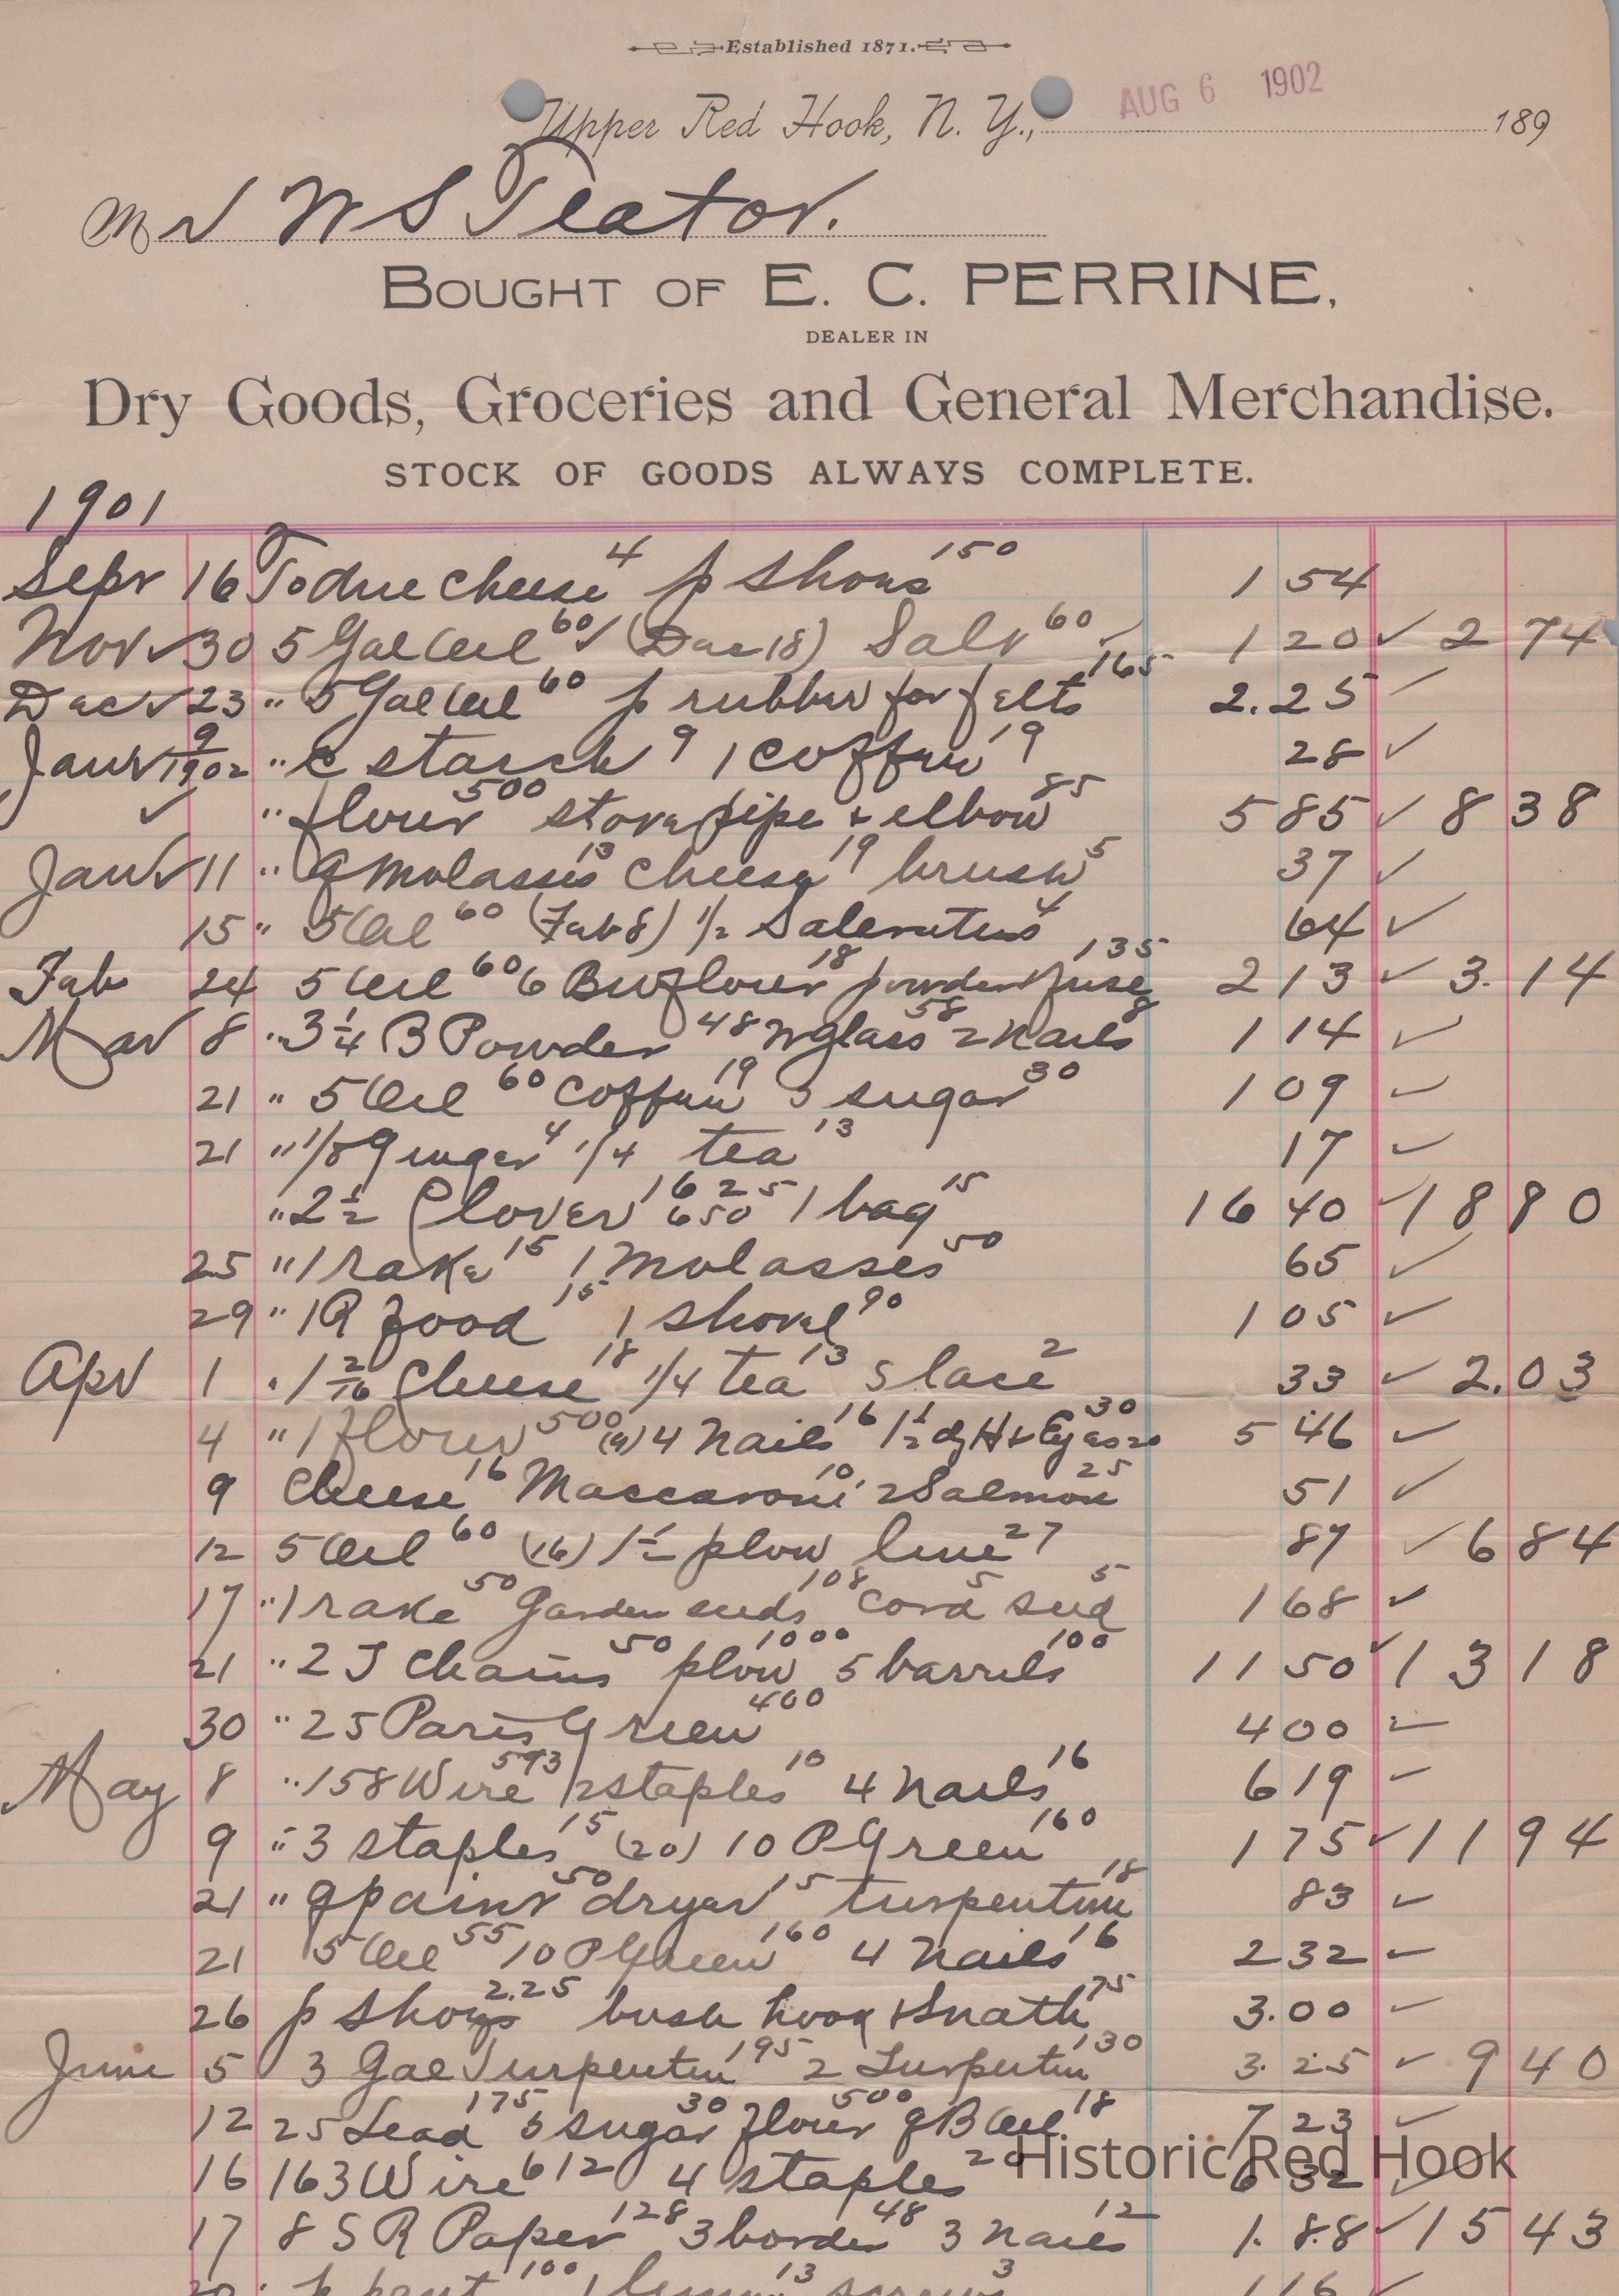 Established 1871.
Upper Red Hook, N. Y., AUG 6 1902 189
Mr W S Teator.
BOUGHT OF E. C. PERRINE,
DEALER IN
Dry Goods, Groceries and General Merchandise.
STOCK OF GOODS ALWAYS COMPLETE.
1901
Sept 16 To due cheese 4 p shoes 150 1 54
Nov 30 5 Gal Oil 60 (Dec 18) Salt 60 1 20 2 74
Dec 23 " 5 Gal Oil 60 p rubber for felts 165 2.25
Jan 9 1902 " c starch 9 1 coffee 19 28
" flour 500 stove pipe & elbow 85 5 85 8 38
Jan 11 " q molasses 13 cheese 19 brush 5 37
15 " 5 Oil 60 (Feb 8) 1/2 Saleratus 4 64
Feb 24 5 Oil 60 6 Bu flour 18 powder fuse 135 2 13 3.14
Mar 8 " 3 1/4 B Powder 48 W glass 58 2 nails 8 1 14
21 " 5 Oil 60 coffee 19 5 sugar 30 1 09
21 " 1/8 Ginger 4 1/4 tea 13 17
" 2 1/2 Clover 16 25 650 1 bag 15 16 40 18 80
25 " 1 rake 15 1 molasses 50 65
29 " 1 P food 15 1 shovel 90 1 05
Apr 1 " 1 2/16 Cheese 18 1/4 tea 13 s lace 2 33 2.03
4 " 1 flour 500 (9) 4 nails 16 1 1/2 dz H & Eyes 30 5 46
9 Cheese 16 Maccaroni 10 2 Salmon 25 51
12 5 Oil 60 (16) 1 plow line 27 87 6 84
17 " 1 rake 50 Garden seeds 108 cord 5 seed 5 1 68
21 " 2 T chains 50 plow 1000 5 barrels 100 11 50 13 18
30 " 25 Paris Green 400 4 00
May 8 " 158 Wire 593 2 staples 10 4 nails 16 6 19
9 " 3 staples 15 (20) 10 P Green 160 1 75 11 94
21 " q paint 50 dryer 15 turpentine 18 83
21 5 Oil 55 10 P Green 160 4 nails 16 2 32
26 p shoes 2.25 bush hook & Snath 75 3.00
June 5 3 Gal Turpentin 195 2 Turpentin 130 3.25 9 40
12 25 Lead 175 5 sugar 30 flour 500 q B Oil 18 7 23
16 163 Wire 612 4 staples 20 6 32
17 8 S R Paper 128 3 border 48 3 nails 12 1.88 15 43
20 " p pant 100 1 lemon 13 screws 3 1 16
Historic Red Hook